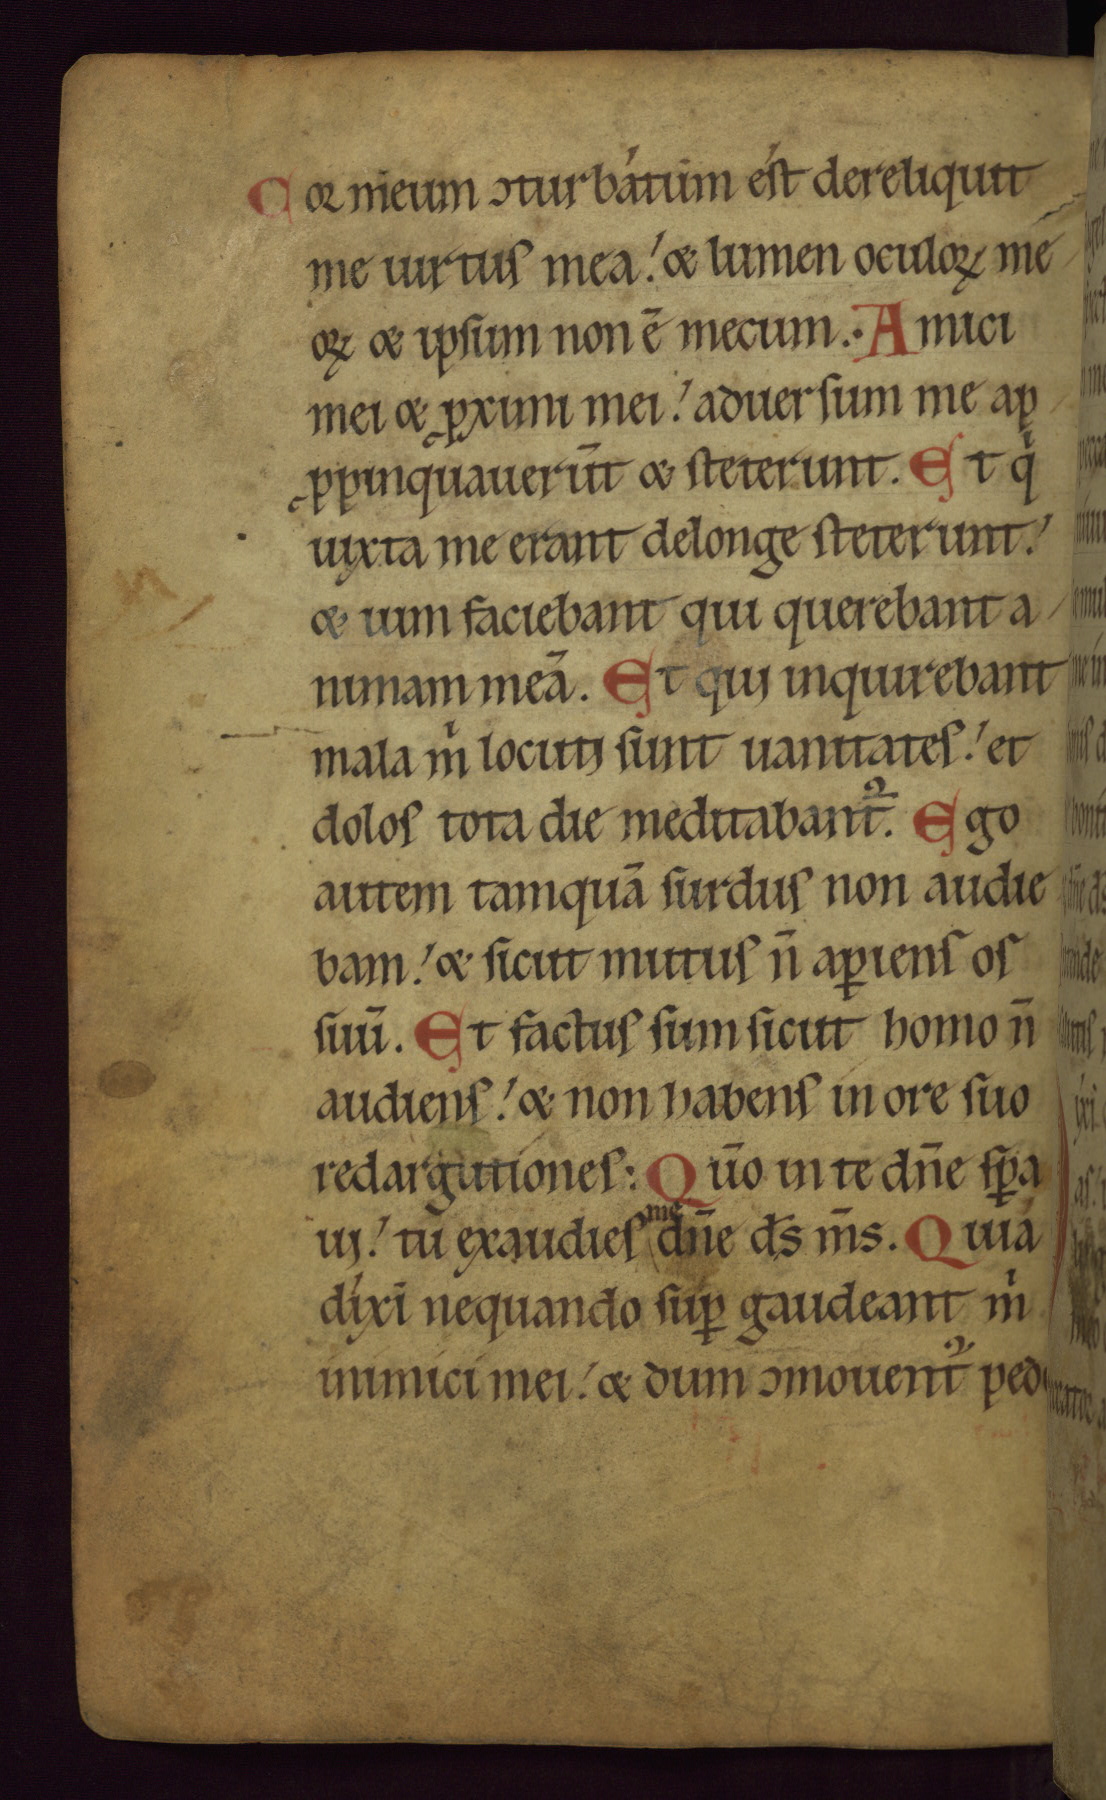 Cor meum ɔturbatum est dereliquit
me uirtus mea. & lumen oculoꝝ me
oꝝ & ipsum non ē mecum. Amici
mei & ꝓximi mei. aduersum me ap
ꝓpinquauerūt & steterunt. Et qͥ
iuxta me erant delonge steterunt.
& uim faciebant qui querebant a
nimam meā. Et qui inquirebant
mala mͥ locuti sunt uanitates. et
dolos tota die meditabant᷑. Ego
autem tamquā surdus non audie
bam. & sicut mutus n̄ aꝑiens os
suū. Et factus sum sicut homo n̄
audiens. & non habens in ore suo
redargutiones: Qūo in te dn̄e sꝑa
ui. tū exaudies me dn̄e ds̄ m̄s. Quia
dixi nequando suꝑ gaudeant mͥ
inimici mei. & dum ɔmouent᷑ ped